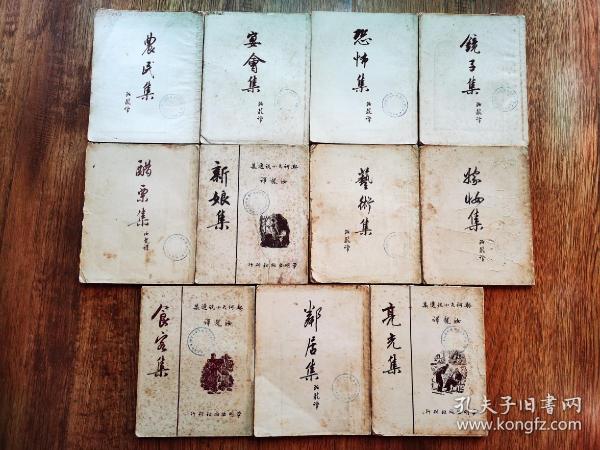 農民集
汝龍譯
宴會集
汝龍譯
恐怖集
汝龍譯
鏡子集
汝龍譯
醋栗集
汝龍譯
契訶夫小說選集
汝龍譯
新娘集
平明出版社刊行
藝術集
汝龍譯
嫁妝集
汝龍譯
契訶夫小說選集
汝龍譯
食客集
平明出版社刊行
鄰居集
汝龍譯
契訶夫小說選集
汝龍譯
亮光集
平明出版社刊行
孔夫子旧书网
www.kongfz.com